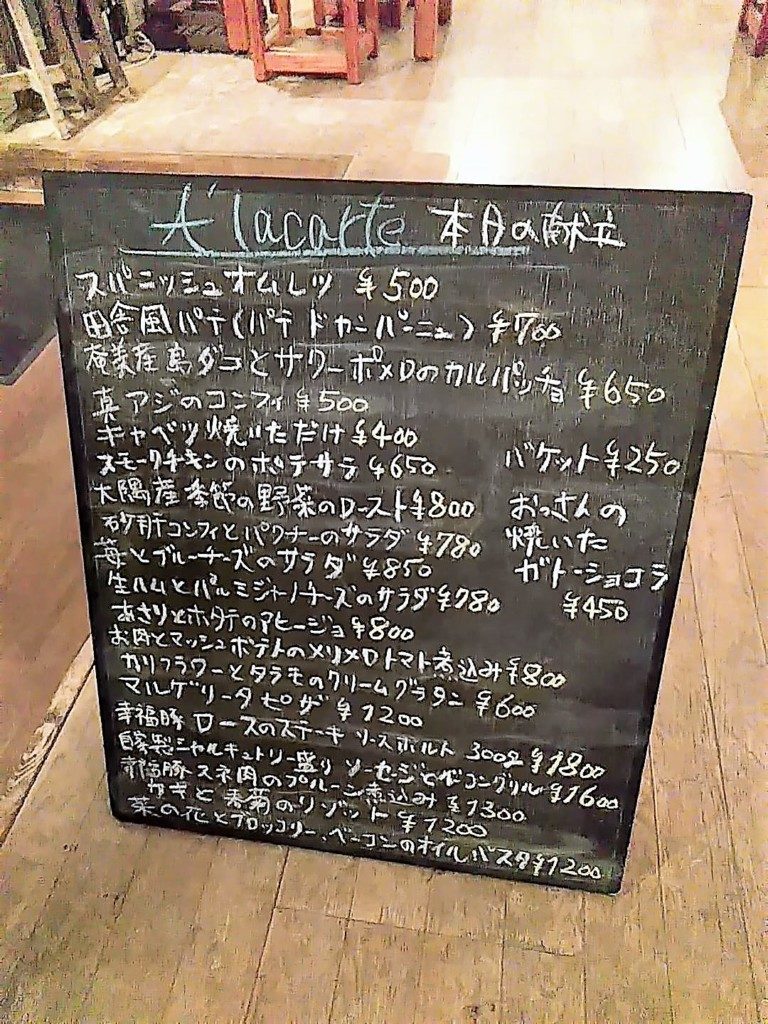 A' lacarte 本月の献立
スパニッシュオムレツ ¥500
田舎風パテ(パテ ド カンパーニュ) ¥700
奄美産島ダコとサワーポメロのカルパッチョ ¥650
真アジのコンフィ ¥500
キャベツ焼いただけ ¥400
スモークチキンのポテサラ ¥650
大隅産季節の野菜のロースト ¥800
砂肝コンフィとパクチーのサラダ ¥780
苺とブルーチーズのサラダ ¥850
生ハムとパルミジャーノチーズのサラダ ¥780
あさりとホタテのアヒージョ ¥800
お肉とマッシュポテトのメリメロトマト煮込み ¥800
カリフラワーとタラモのクリームグラタン ¥600
マルゲリータピザ ¥1200
幸福豚 ロースのステーキ ソースポルト 300g ¥1800
自家製シャルキュトリー盛り ソーセージとベーコングリル ¥1600
幸福豚スネ肉のプルーン煮込み ¥1300
カキと春菊のリゾット ¥1200
菜の花とブロッコリー、ベーコンのオイルパスタ ¥1200
バケット ¥250
おっさんの
焼いた
ガトーショコラ
¥450